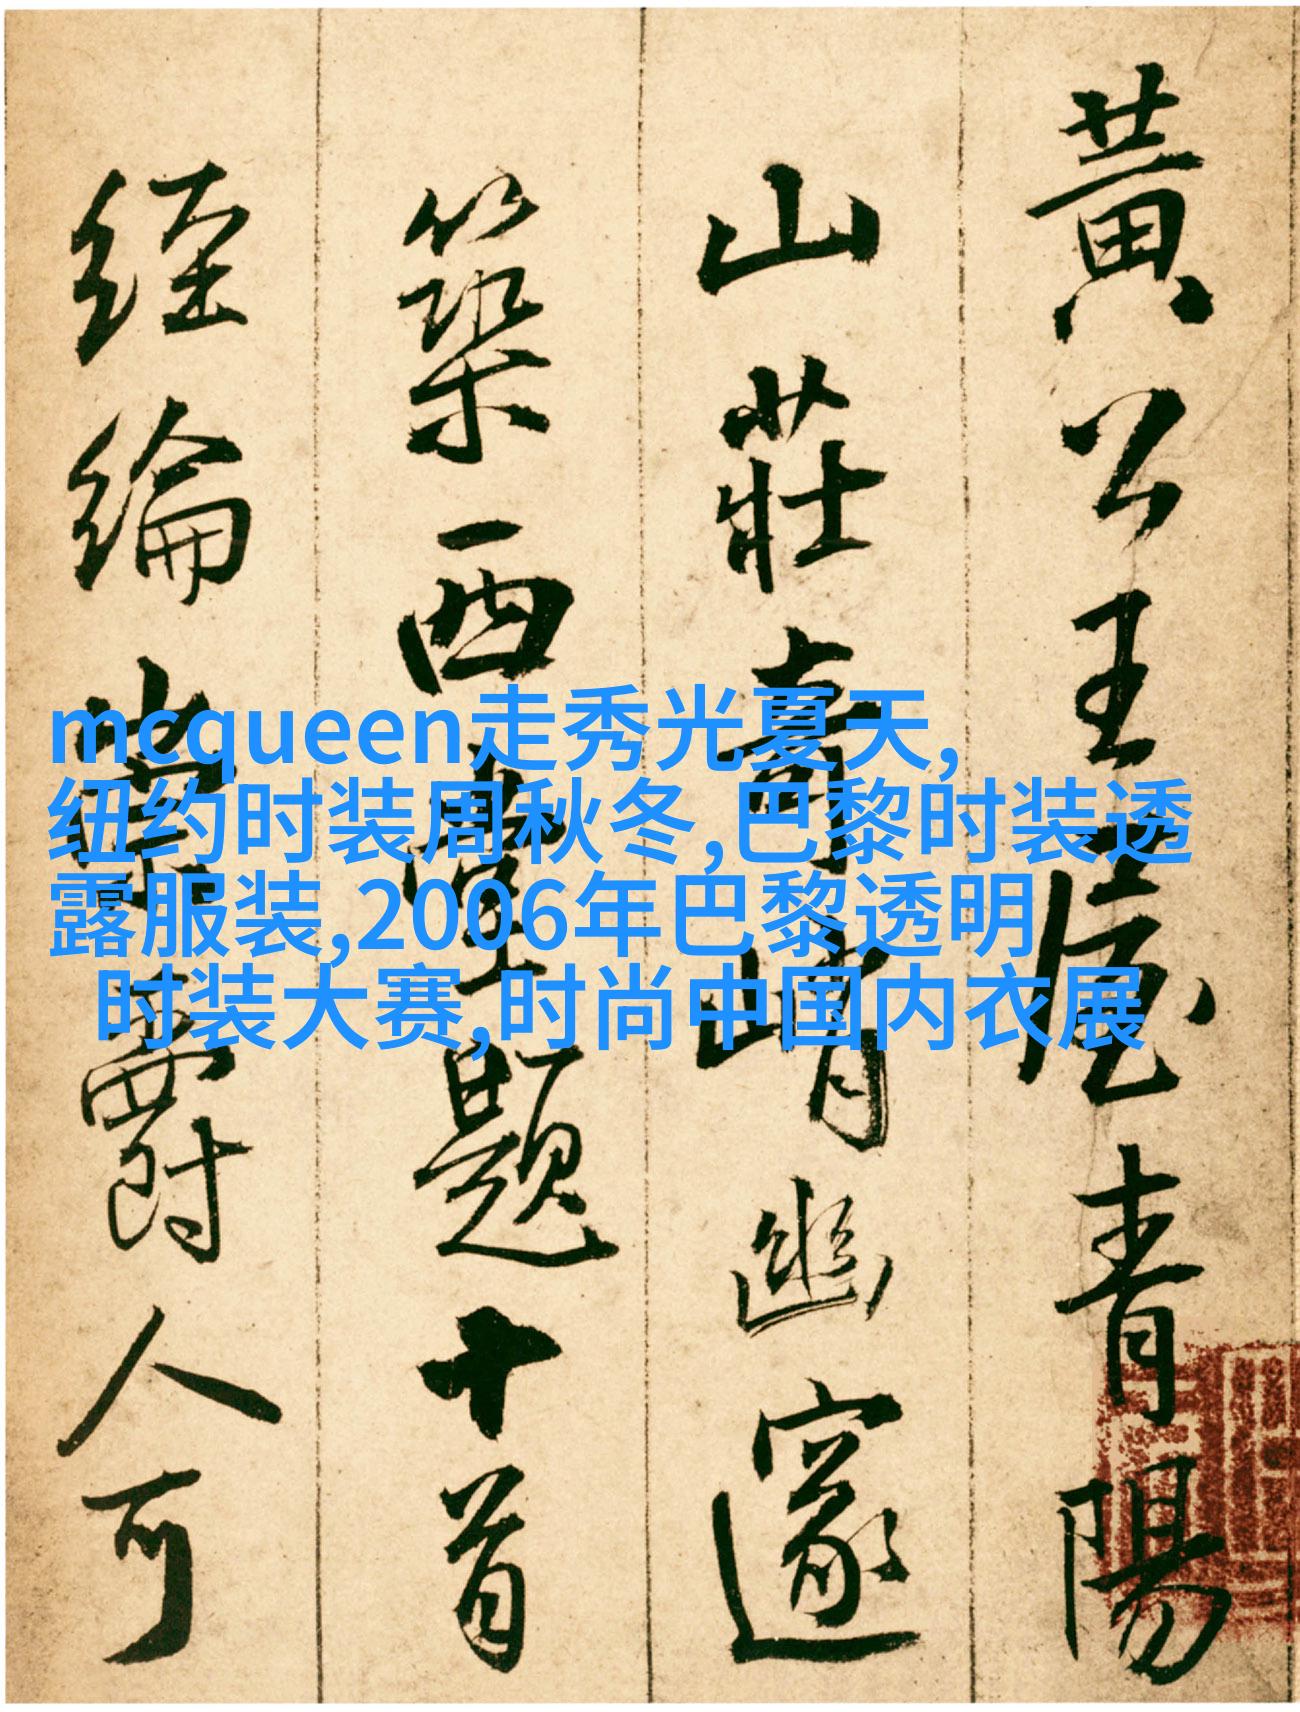 黃公王屋青陽
山莊奇峭幽邃
築西臺題十首
經綸爵人可
mcqueen走秀光夏天,
纽约时装周秋冬,巴黎时装透
露服装,2006年巴黎透明
时装大赛,时尚中国内衣展